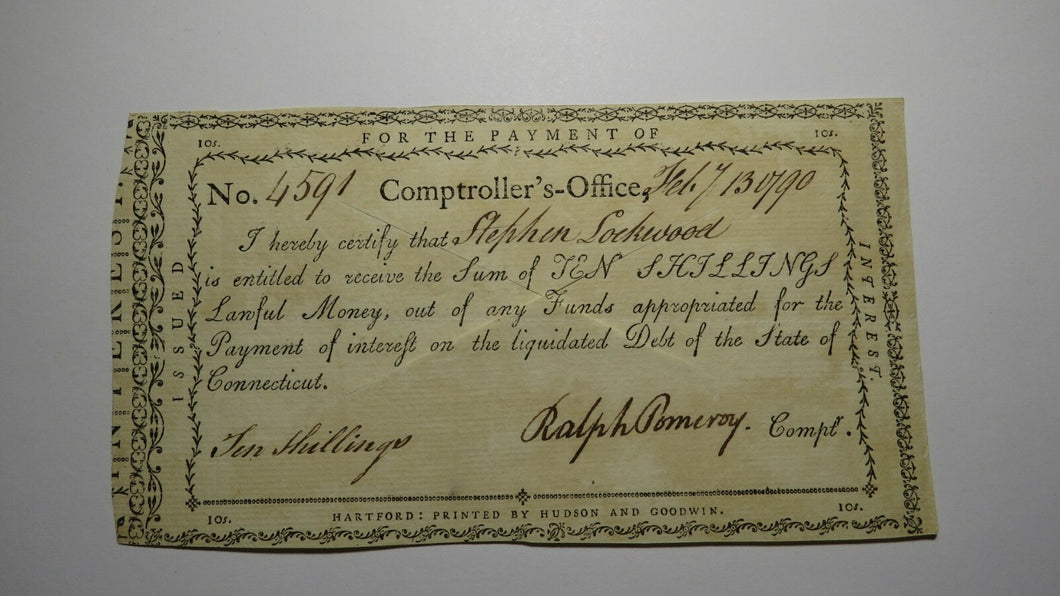 FOR THE PAYMENT OF
10s. 10s.
No. 4591 Comptroller's-Office, Feb. 13 1790
I hereby certify that Stephen Lockwood
is entitled to receive the Sum of TEN SHILLINGS
Lawful Money, out of any Funds appropriated for the
Payment of interest on the liquidated Debt of the State of
Connecticut.
Ralph Pomeroy. Compt^r.
Ten shillings
10s. 10s.
HARTFORD: PRINTED BY HUDSON AND GOODWIN.
ISSUED
INTEREST.